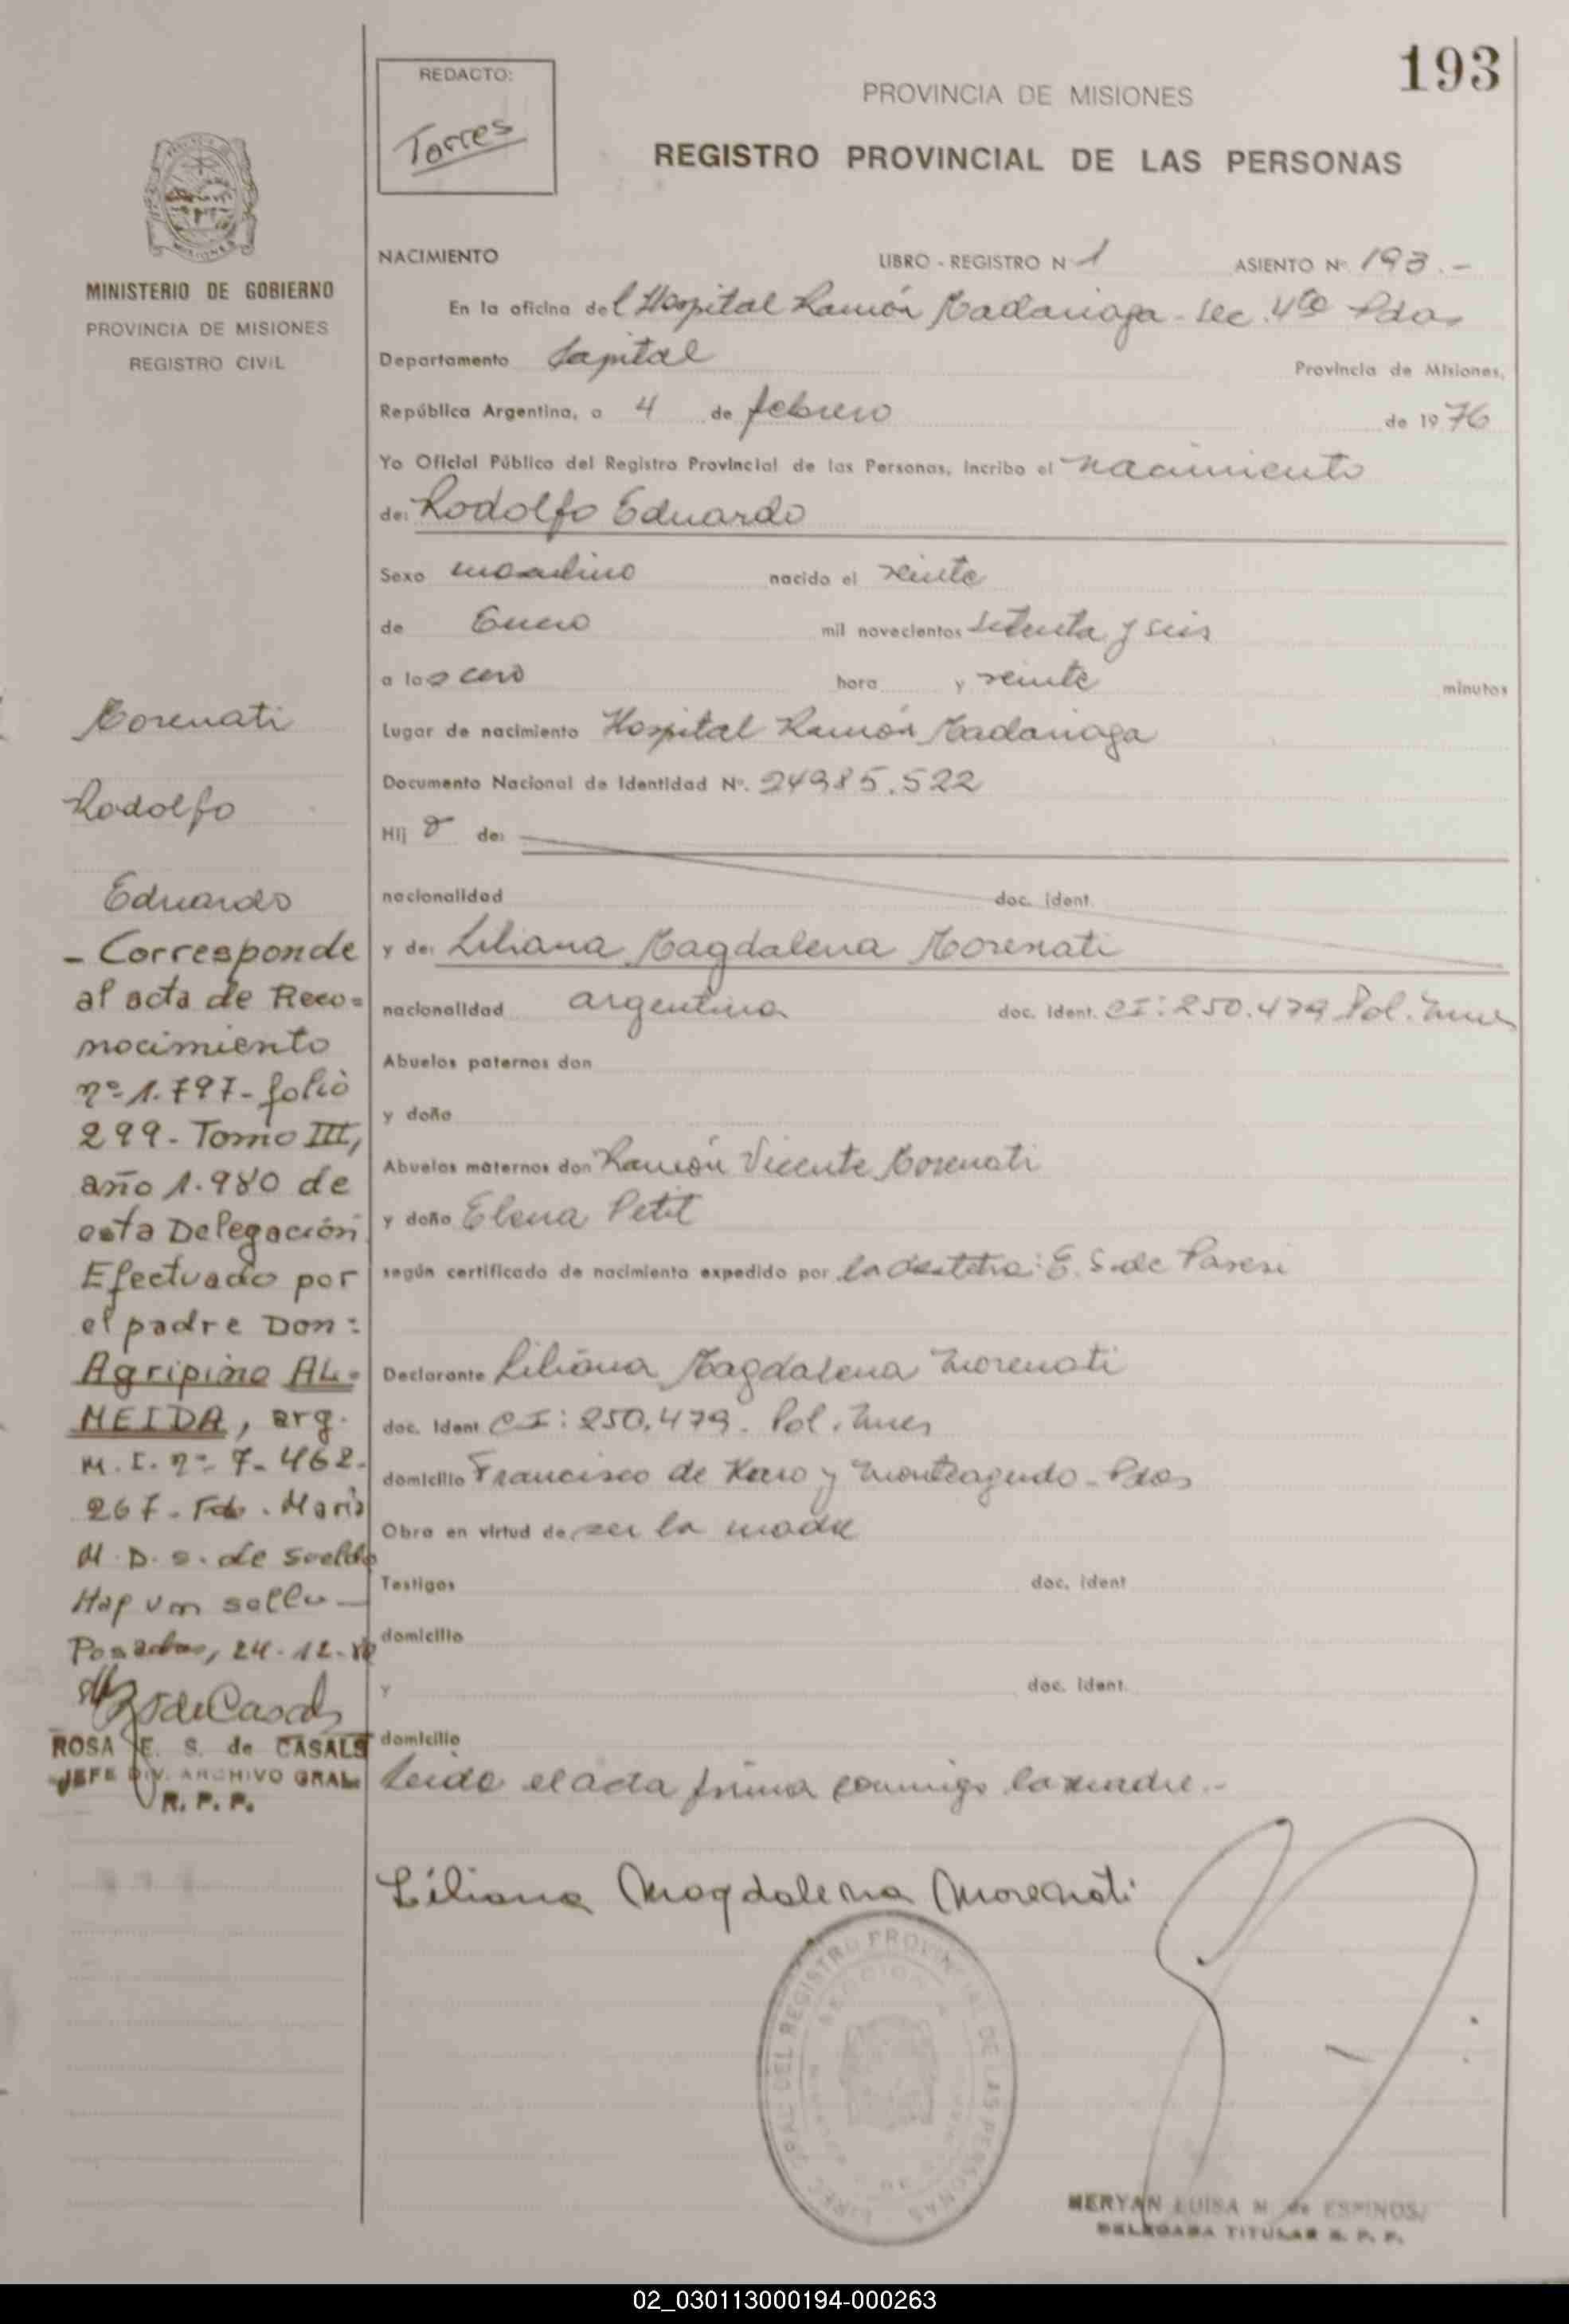 193
REDACTO:
Torres
PROVINCIA DE MISIONES
REGISTRO PROVINCIAL DE LAS PERSONAS
MINISTERIO DE GOBIERNO
PROVINCIA DE MISIONES
REGISTRO CIVIL
NACIMIENTO LIBRO - REGISTRO Nº 1 ASIENTO Nº 193.-
En la oficina del Hospital Ramón Madariaga - Sec. 4ta Pdas
Departamento Capital Provincia de Misiones,
República Argentina, a 4 de febrero de 1976
Yo Oficial Público del Registro Provincial de las Personas, incribo el nacimiento
de: Rodolfo Eduardo
Sexo masculino nacido el veinte
de Enero mil novecientos setenta y seis
a las cero hora y veinte minutos
Lugar de nacimiento Hospital Ramón Madariaga
Documento Nacional de Identidad Nº. 24985.522
Hij o de:
nacionalidad doc. ident.
y de: Liliana Magdalena Morenati
nacionalidad argentina doc. ident. CI: 250.479 Pol. Mnes
Abuelos paternos don
y doña
Abuelos maternos don Ramón Vicente Morenati
y doña Elena Petit
según certificado de nacimiento expedido por la obstetra: E. S. de
Declarante Liliana Magdalena Morenati
doc. Ident CI: 250.479. Pol. Mnes
domicilio Francisco de Haro y Monteagudo - Pdas
Obra en virtud de ser la madre
Testigos doc. ident
domicilio
y doc. ident.
domicilio
Leida el acta firma conmigo la madre.-
Liliana Magdalena Morenati
Morenati
Rodolfo
Eduardo
- Corresponde
al acta de Reco=
nocimiento
nº 1.797 - folio
299 - Tomo III,
año 1.980 de
esta Delegación
Efectuado por
el padre Don:
Agripino AL=
MEIDA, arg.
M.I. nº 7.462.
267 - Fdo. Maria
M. D. S. de Sueldo
Hay un sello
Posadas, 24-12-80
ROSA E. S. de CASALS
JEFE DIV. ARCHIVO GRAL.
R. P. P.
REGISTRO PROVINCIAL DE LAS PERSONAS
MERYAN LUISA M. de ESPINOSA
DELEGADA TITULAR R. P. P.
02_030113000194-000263